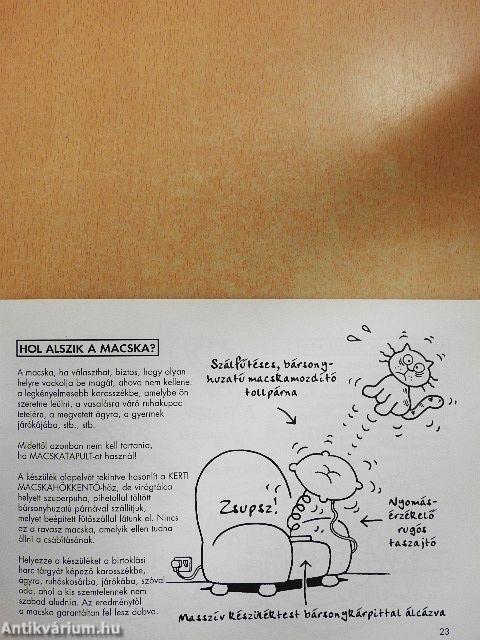 HOL ALSZIK A MACSKA?
A macska, ha választhat, biztos, hogy olyan
helyre vackolja be magát, ahova nem kellene:
a legkényelmesebb karosszékbe, amelybe ön
szeretne leülni, a vasalásra váró ruhakupac
tetejére, a megvetett ágyra, a gyermek
járókájába, stb., stb.
Midettől azonban nem kell tartania,
ha MACSKATAPULT-ot használ!
A készülék alapelvét tekintve hasonlít a KERTI
MACSKAHÖKKENTŐ-höz, de virágtálca
helyett szuperpuha, pihetollul töltött
bársonyhuzatú párnával szállítjuk,
melyet beépített fűtőszállal látunk el. Nincs
az a ravasz macska, amelyik ellen tudna
állni a csábításának.
Helyezze a készüléket a birtoklási
harc tárgyát képező karosszékbe,
ágyra, ruhóskosárba, járókába, szóval
oda, ahol a kis szemtelennek nem
szabad aludnia. Az eredménytől
a macska garantáltan fel lesz dobva.
Szálfűtéses, bársony-
huzatú macskamozdító
tollpárna
Zsupsz!
Nyomás-
érzékelő
rugós
taszajtó
Masszív készüléktest bársonykárpittal álcázva
23
Antikvárium.hu